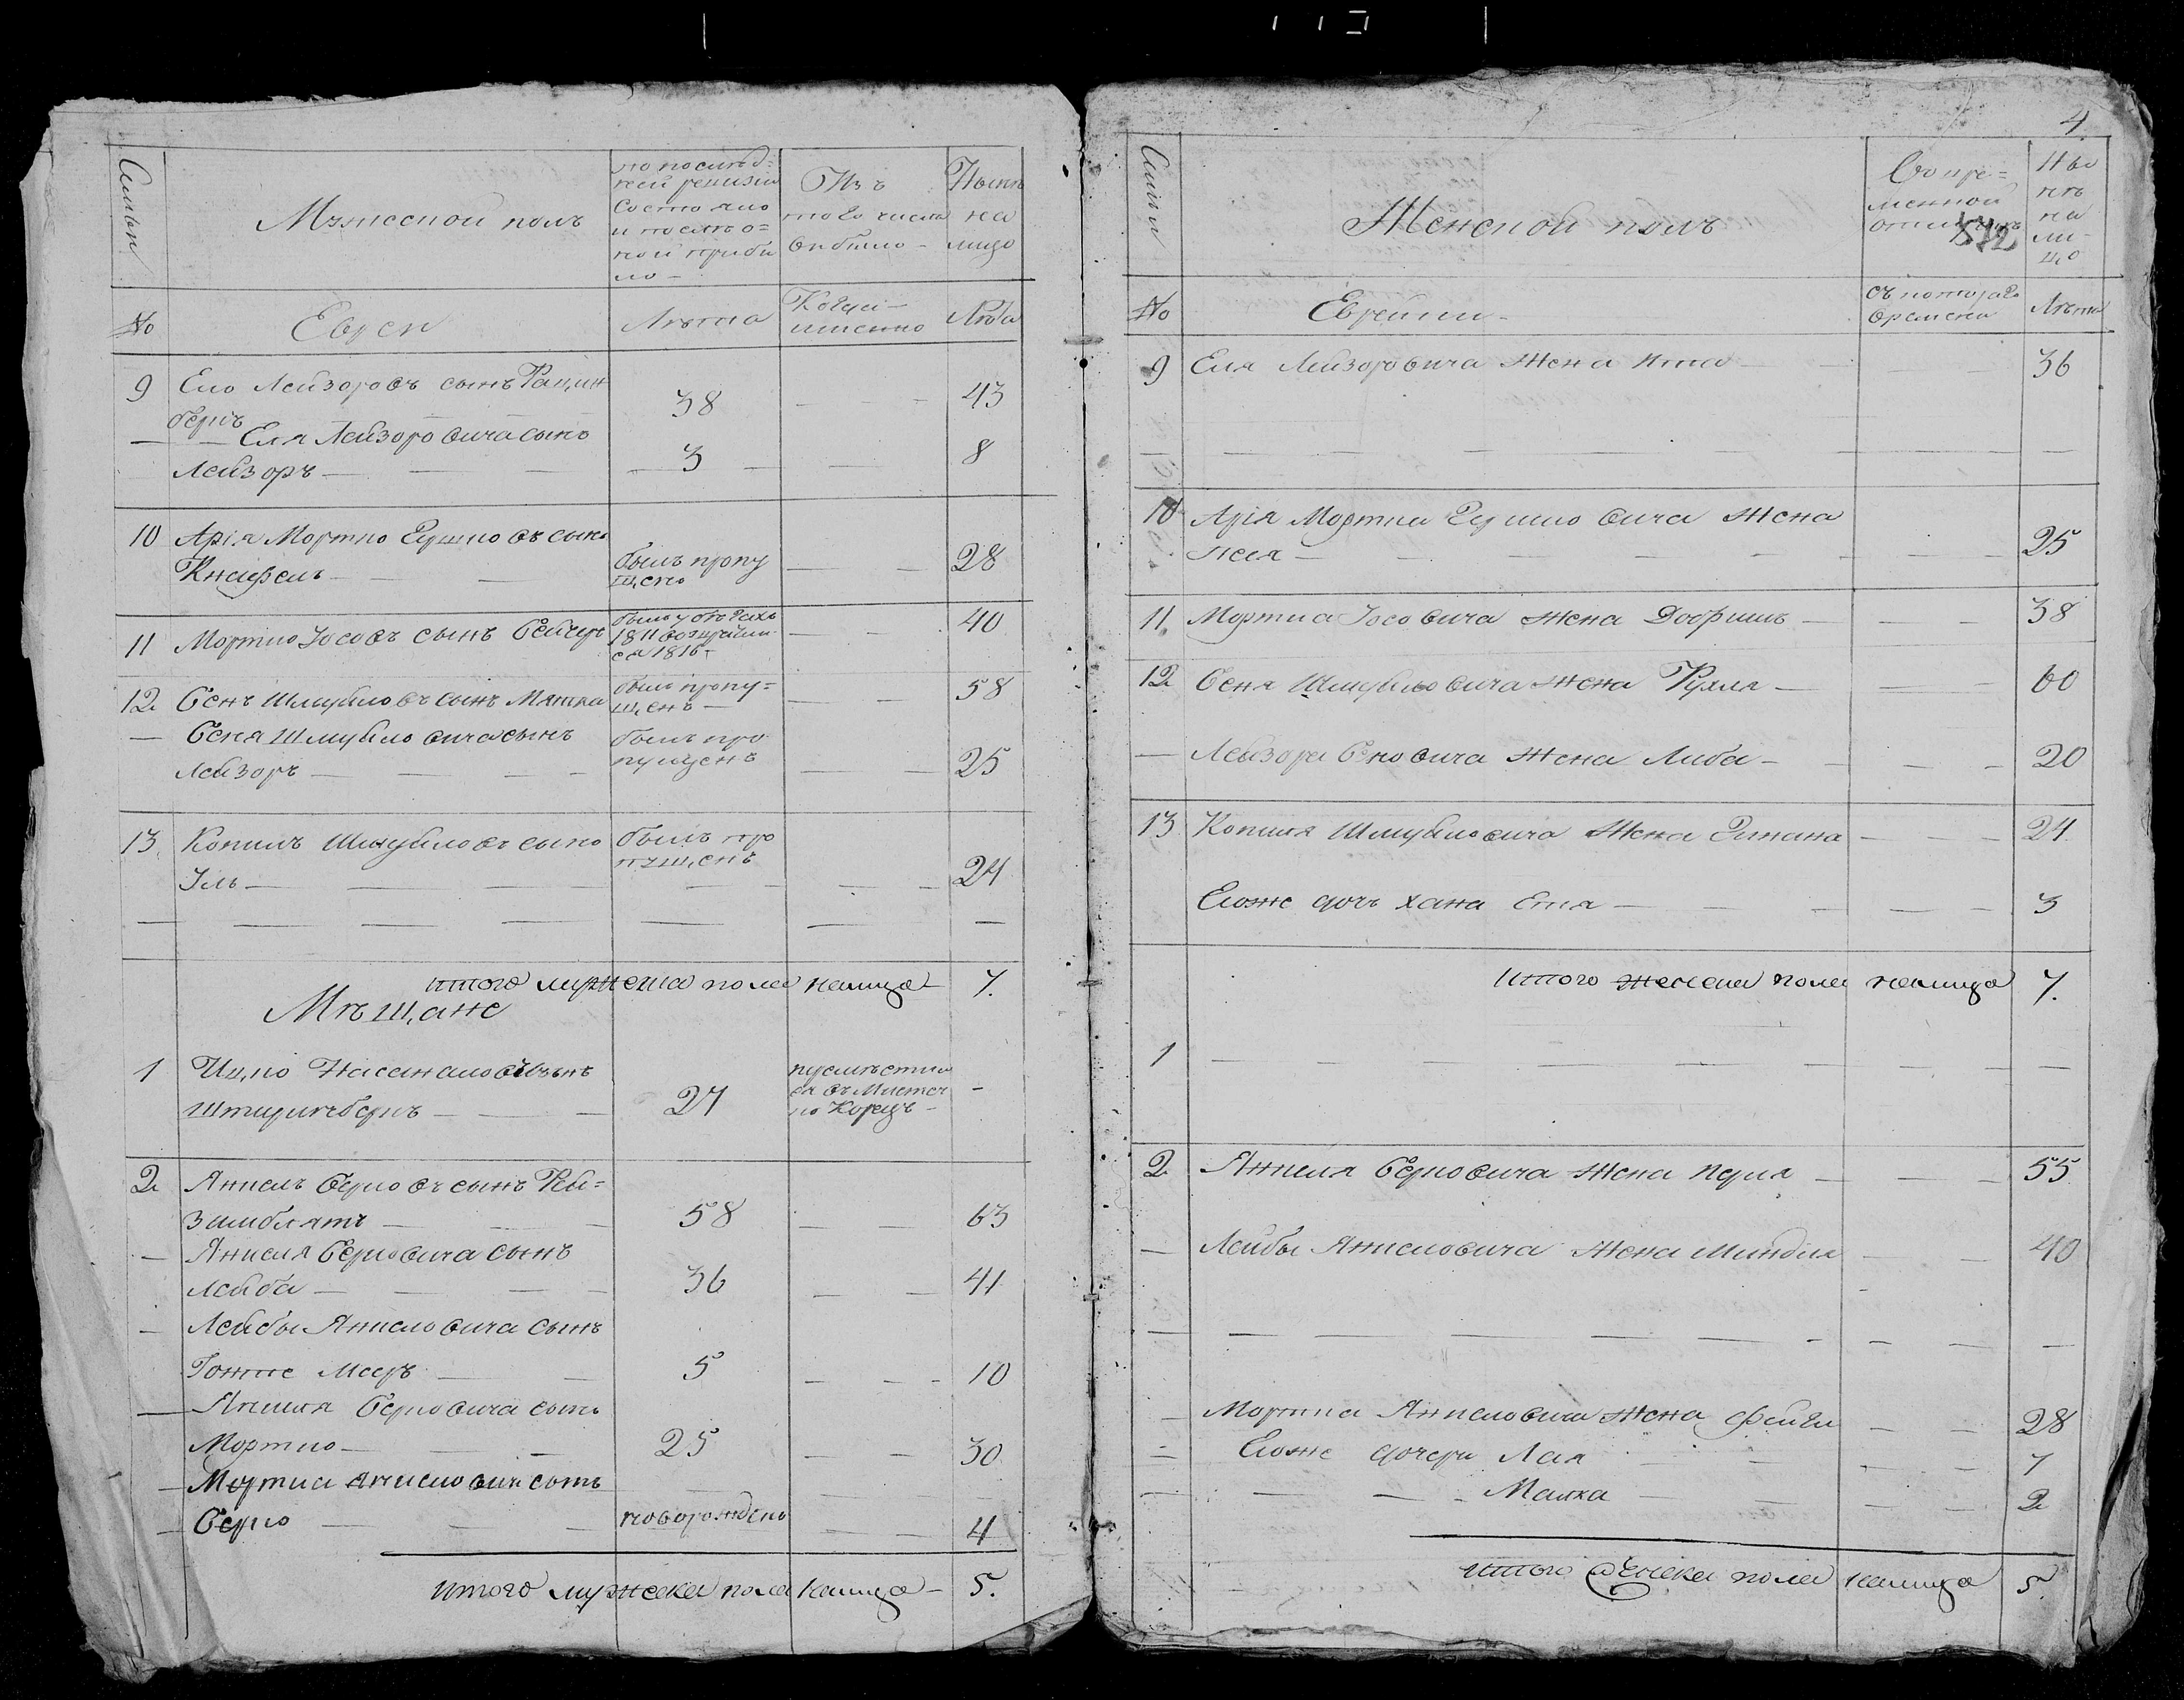 Мужеской полъ
по послѣд=
ней ревизіи
состояло
и послѣ о=
ной прибы
ло
Изъ
того числа
выбыло
Нынѣ
на
лицо
№
Евреи
Лѣта
Когда
именно
Лѣта
9 Ело Лейзоровъ сынъ
38 43
Еля Лейзоровича сынъ
Лейзоръ 3 8
10 Арія Мортко сынъ
былъ пропу
щенъ 28
11 Мортко Іосовъ сынъ
1811
1816 40
12 Бенъ Шмуйловъ сынъ
былъ пропу=
щенъ 58
Беня Шмуйловича сынъ
Лейзоръ
былъ про
пущенъ 25
13 Копилъ Шмуйловъ сынъ
былъ про
пущенъ 24
итого мужеска пола налицо 7.
Мѣщане
1 Ицко сынъ
27
въ Мѣстеч
ко Корецъ
2 Янкель Берковъ сынъ
58 63
Янкеля Берковича сынъ
Лейба 36 41
Лейбы Янкеловича сынъ
Мееръ 5 10
Янкеля Берковича сынъ
Мортко 25 30
Мортка Янкеловича сынъ
Берко новорожденъ 4
итого мужеска пола налицо 5.
4
Женской полъ
Во вре=
менной
отлучкѣ
512
Ны
нѣ
на
ли-
цо
№
Еврейки
съ котораго
времени
Лѣта
9 Еля Лейзоровича жена Ита 36
10 Арія Мортка жена
25
11 Мортка Іосовича жена Добришъ 38
12 Беня Шмуйловича жена Рухля 60
Лейзора Беновича жена Либа 20
13 Копиля Шмуйловича жена 24
Егоже дочь хана Етя 3
итого женска пола налицо 7.
1
2 Янкеля Берковича жена Перля 55
Лейбы Янкеловича жена Миндля 40
Мортка Янкеловича жена Фейга 28
Егоже дочери Лая 7
Малка 2
итого женска пола налицо 5.